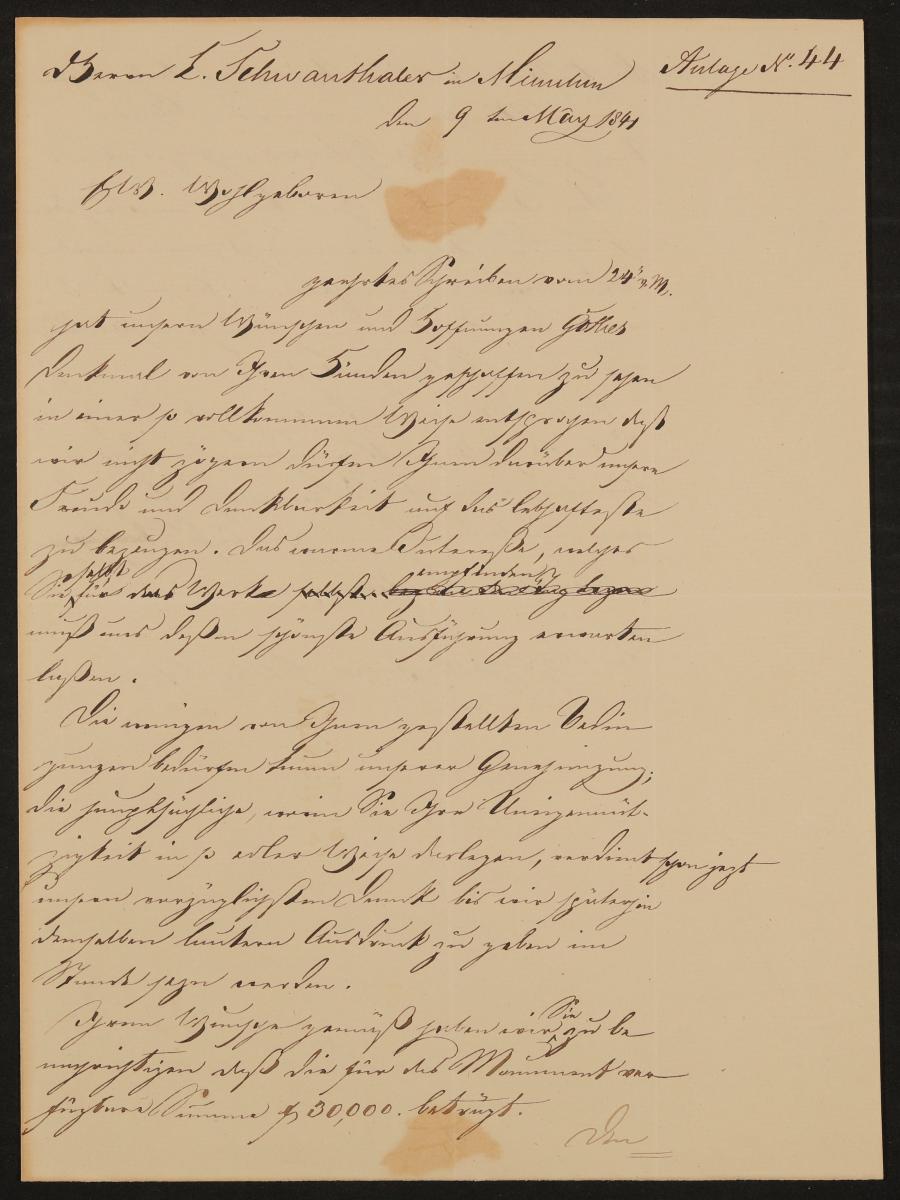 Herrn L. Schwanthaler in München
Anlage No. 44
den 9ten May 1841
Ew. Wohlgeboren
geehrtes Schreiben vom 24 v. M.
hat unsern Wünschen und Hoffnungen Göthes
Denkmal von Ihren Händen geschaffen zu sehen
in einer so vollkommnen Weise entsprochen daß
wir nicht zögern dürfen Ihnen darüber unsere
Freude und Dankbarkeit auf das lebhafteste
zu bezeugen. Das warme Intereße, welches
Sie selbst für das Werk empfinden
muß uns deßen schönste Ausführung erwarten
laßen.
Die wenigen von Ihnen gestellten Bedin
gungen bedürfen kaum unserer Genehmigung;
die hauptsächliche, worin Sie Ihre Uneigennüt-
zigkeit in so edler Weise darlegen, verdient schon jezt
unsern vorzüglichsten Dank bis wir späterhin
demselben lautern Ausdruck zu geben im
Stande seyn werden.
Ihrem Wunsche gemäß haben wir Sie zu be
nachrichtigen daß die für das Monument ver
fügbare Summe f 30,000. beträgt.
Den